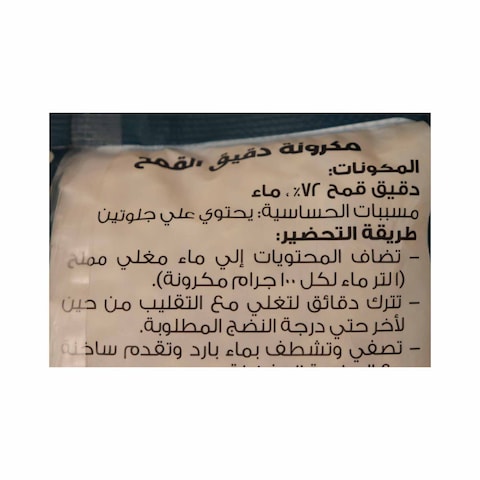 مكرونة دقيق القمح
المكونات:
دقيق قمح ٧٢٪، ماء
مسببات الحساسية: يحتوي علي جلوتين
طريقة التحضير:
- تضاف المحتويات إلي ماء مغلي مملح
(التر ماء لكل ١٠٠ جرام مكرونة).
- تترك دقائق لتغلي مع التقليب من حين
لأخر حتي درجة النضج المطلوبة.
- تصفي وتشطف بماء بارد وتقدم ساخنة